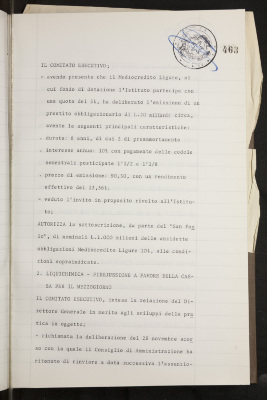 463
IL COMITATO ESECUTIVO;
- avendo presente che il Mediocredito Ligure, al
cui fondo di dotazione l'Istituto partecipa con
una quota del 5%, ha deliberato l'emissione di un
prestito obbligazionario di L.20 miliardi circa,
avente le seguenti principali caratteristiche:
- durata: 8 anni, di cui 3 di preammortamento
- interesse annuo: 10% con pagamento delle cedole
semestrali posticipate 1°/2 e 1°/8
- prezzo di emissione: 90,50, con un rendimento
effettivo del
- veduto l'invito in proposito rivolto all'Istitu-
to;
AUTORIZZA la sottoscrizione, da parte del "San Pao
lo", di nominali L.1.000 milioni delle suddette
obbligazioni Mediocredito Ligure 10%, alle condi-
zioni sopraindicate.
2. LIQUICHIMICA - FIDEJUSSIONE A FAVORE DELLA CAS-
SA PER IL MEZZOGIORNO
IL COMITATO ESECUTIVO, intesa la relazione del Di-
rettore Generale in merito agli sviluppi della pra
tica in oggetto;
- richiamata la deliberazione del 28 novembre scor
so con la quale il Consiglio di Amministrazione ha
ritenuto di rinviare a data successiva